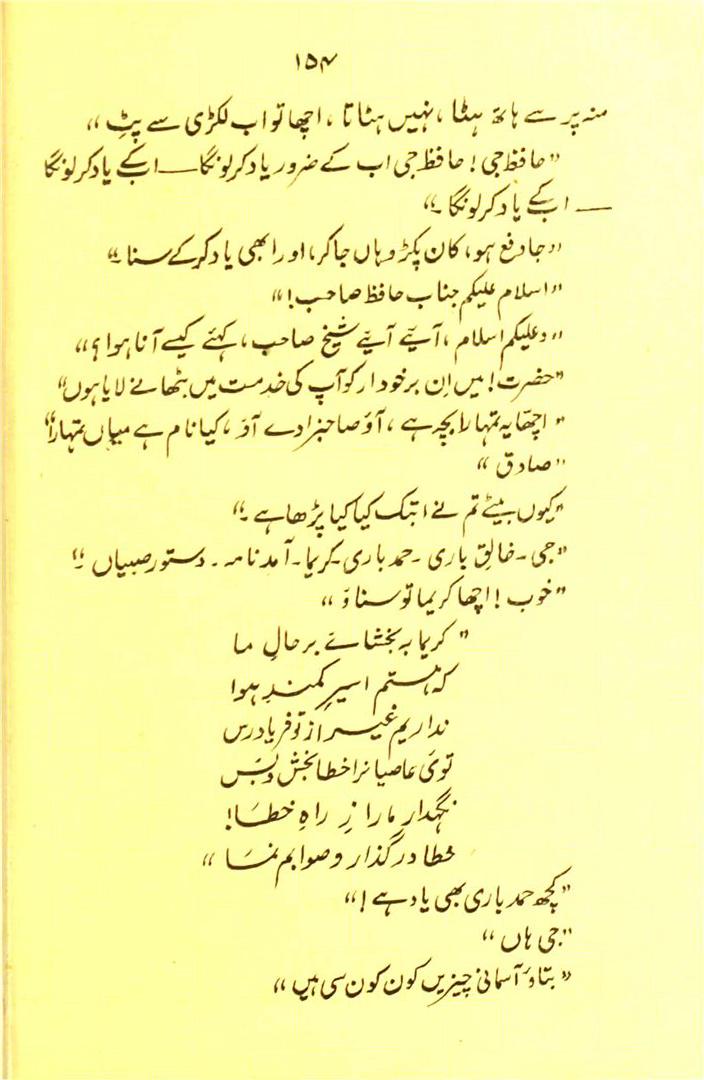 ۱۵۴
منہ پر سے ہاتھ ہٹا ، نہیں ہٹاتا ، اچھا تو اب لکڑی سے پٹِ “
”حافظ جی ! حافظ جی اب کے ضرور یاد کر لونگا — ابکے یاد کر لونگا
— ابکے یاد کر لونگا ۔“
”جا دفع ہو، کان پکڑ وہاں جا کر، اور ابھی یاد کر کے سنا ۔“
”اسلام علیکم جناب حافظ صاحب ! “
”وعلیکم اسلام ، آیئے آیئے شیخ صاحب ، کہئے کیسے آنا ہوا ؟ “
”حضرت ! میں اِن برخودار کو آپ کی خدمت میں بٹھانے لایا ہوں“
” اچھا یہ تمہارا بچہ ہے ، آؤ صاحبزادے آؤ ، کیا نام ہے میاں تمہارا “
”صادق “
”کیوں بیٹے تم نے ابتک کیا کیا پڑھا ہے ۔“
”جی ۔ خالق باری ۔ حمد باری ۔ کریما ۔ آمد نامہ ۔ دستور صبیاں ۔“
”خوب ! اچھا کریما تو سناؤ “
” کریما بہ بخشائے بر حالِ ما
کہ ہستم اسیرِ کمندِ ہوا
نداریم غیر از تو فریاد رس
توئ عاصیانرا خطا بخش و بس
نگہدار ما را زِ راہِ خطا !
خطا در گذار و صوابم نما “
”کچھ حمد باری بھی یاد ہے ! “
”جی ہاں “
”بتاؤ آسمانی چیزیں کون کون سی ہیں “